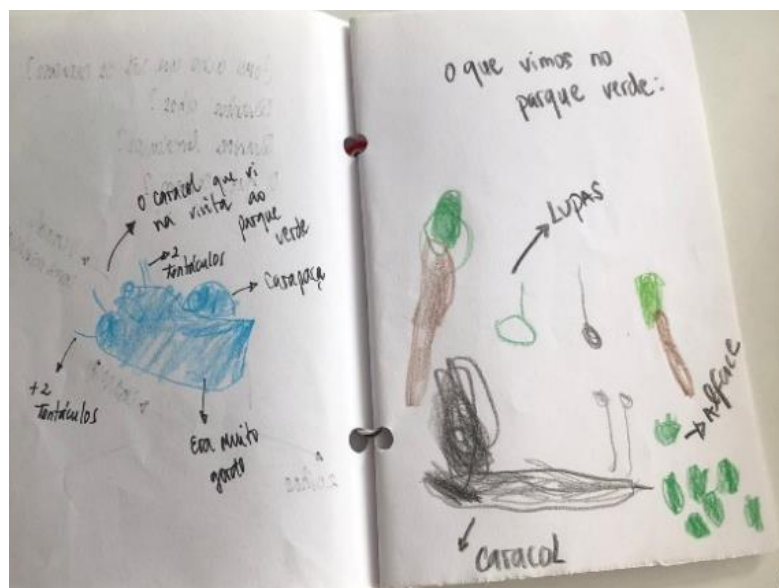 O caracol que vi
na visita ao
parque verde
2
tentáculos
Carapaça
+2
Tentáculos
Era muito
gordo
O que vimos no
parque verde:
LUPAS
Alface
CARACOL